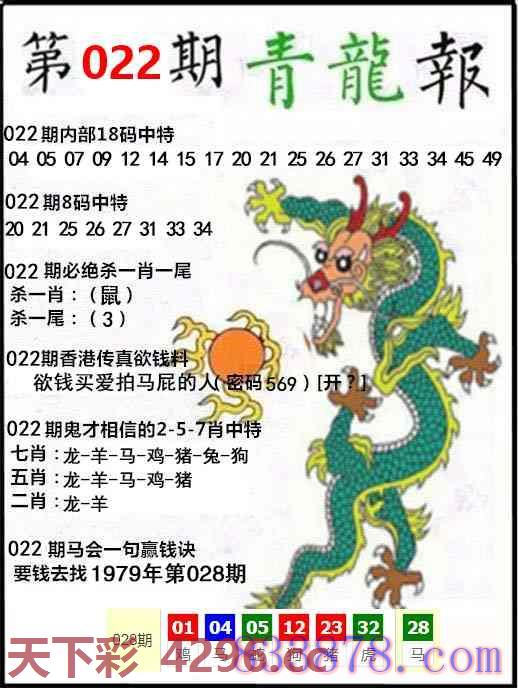 第022期青龍報
022期内部18码中特
04 05 07 09 12 14 15 17 20 21 25 26 27 31 33 34 45 49
022期8码中特
20 21 25 26 27 31 33 34
022期必绝杀一肖一尾
杀一肖：(鼠)
杀一尾：(3)
022期香港传真欲钱料
欲钱买爱拍马屁的人(密码569)[开?]
022期鬼才相信的2-5-7肖中特
七肖：龙-羊-马-鸡-猪-兔-狗
五肖：龙-羊-马-鸡-猪
二肖：龙-羊
022期马会一句赢钱诀
要钱去找1979年第028期
028期 01 04 05 12 23 32 28
鸡 马 蛇 狗 猪 虎 马
天下彩 4296.cc